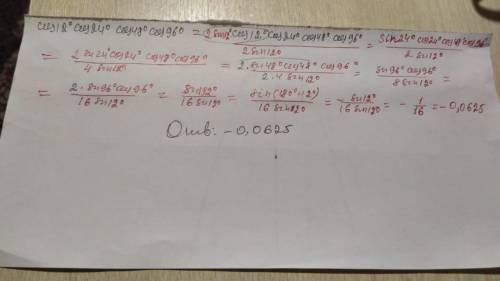 cos12° cos24° cos48° cos96° = (2 sin12° cos12° cos24° cos48° cos96°)/(2 sin12°) = (sin24° cos24° cos48° cos96°)/(2 sin12°)
= (2 sin24° cos24° cos48° cos96°)/(4 sin12°) = (2 · sin48° cos48° cos96°)/(2·4 sin12°) = (sin96° cos96°)/(8 sin12°) =
= (2 · sin96° cos96°)/(16 sin12°) = (sin192°)/(16 sin12°) = (sin(180°+12°))/(16 sin12°) = (- sin12°)/(16 sin12°) = - 1/16 = -0,0625
Отв: -0,0625